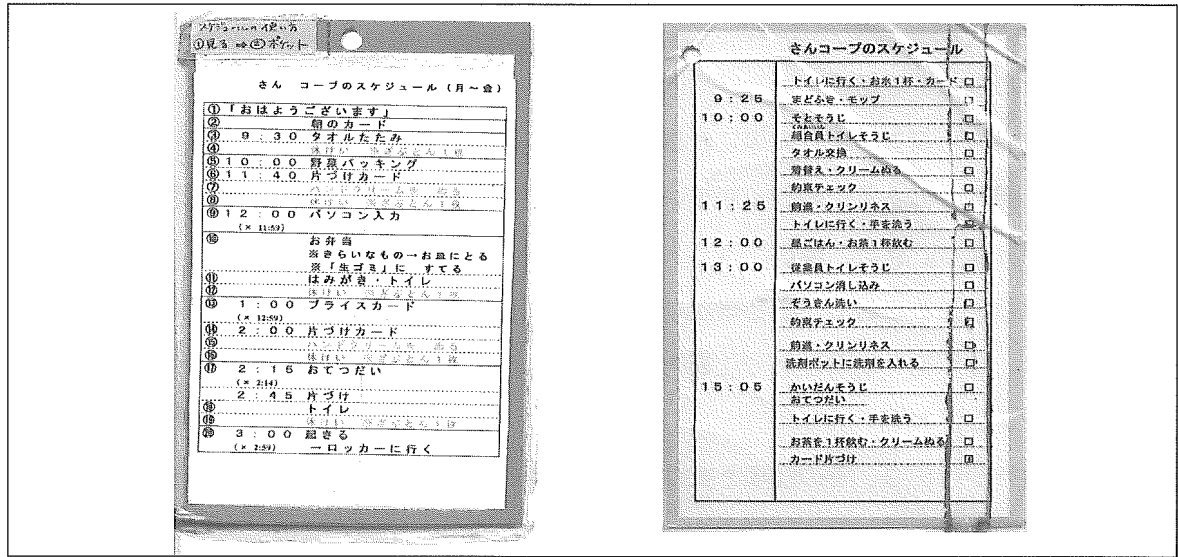 スケジュールの使い方
①見る⇒②ポケット
さん コープのスケジュール（月～金）
①「おはようございます」
② 朝のカード
③ 9：30 タオルたたみ
④ 休けい ※ざぶとん1枚
⑤ 10：00 野菜パッキング
⑥ 11：40 片づけカード
⑦ ハンドクリームを ぬる
⑧ 休けい ※ざぶとん1枚
⑨ 12：00 パソコン入力
（× 11:59）
⑩ お弁当
※きらいなもの→お皿にとる
※「生ゴミ」に すてる
⑪ はみがき・トイレ
⑫ 休けい ※ざぶとん1枚
⑬ 1：00 プライスカード
（× 12:59）
⑭ 2：00 片づけカード
⑮ ハンドクリームを ぬる
⑯ 休けい ※ざぶとん1枚
⑰ 2：15 おてつだい
（× 2:14）
2：45 片づけ
⑱ トイレ
⑲ 休けい ※ざぶとん1枚
⑳ 3：00 起きる
（× 2:59） →ロッカーに行く
さんコープのスケジュール
トイレに行く・お水1杯・カード □
9：25 まどふき・モップ □
10：00 そとそうじ □
くみあいいん
組合員トイレそうじ □
タオル交換 □
着替え・クリームぬる □
約束チェック □
11：25 前進・クリンリネス □
トイレに行く・手を洗う □
12：00 昼ごはん・お茶1杯飲む □
13：00 従業員トイレそうじ □
パソコン消し込み □
ぞうきん洗い □
約束チェック □
前進・クリンリネス □
洗剤ポットに洗剤を入れる □
15：05 かいだんそうじ □
おてつだい
トイレに行く・手を洗う □
お茶を1杯飲む・クリームぬる □
カード片づけ □